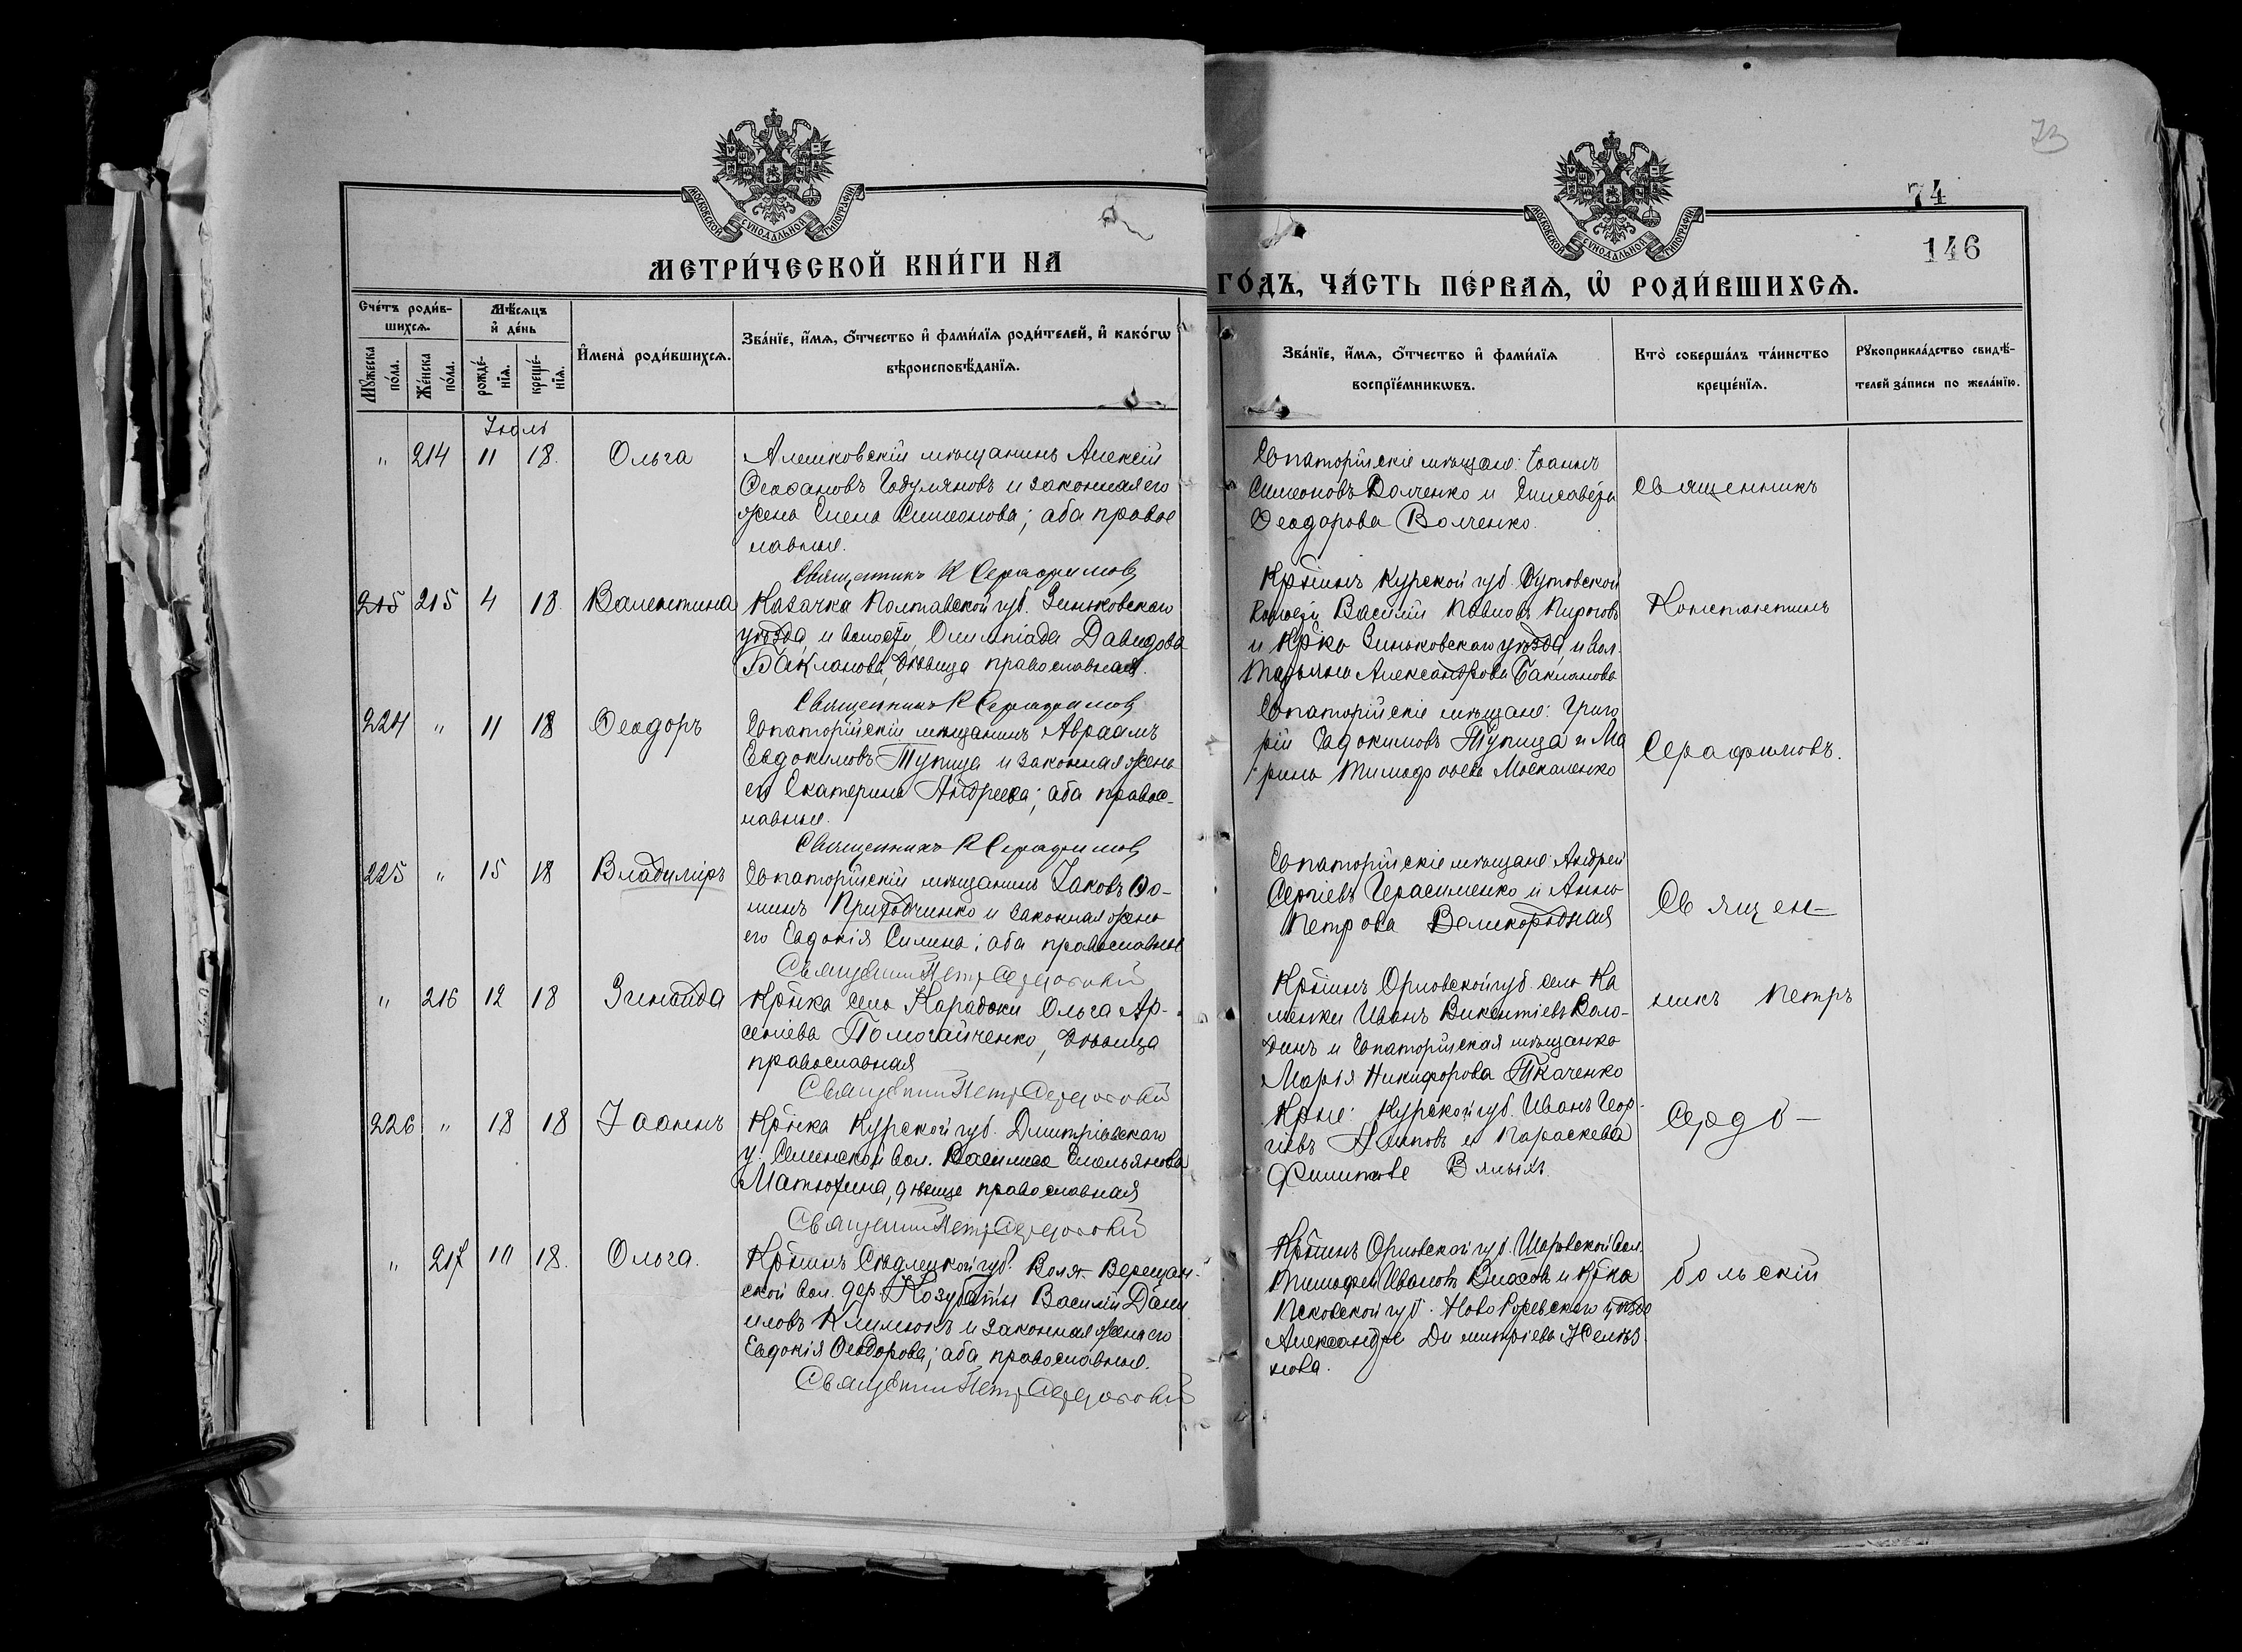 73
74
146
МОСКОВСКОЙ СѴНОДАЛЬНОЙ ТИПОГРАФІИ
МОСКОВСКОЙ СѴНОДАЛЬНОЙ ТИПОГРАФІИ
МЕТРИ́ЧЕСКОЙ КНИ́ГИ НА
ГО́ДЪ, ЧА́СТЬ ПЕ́РВАѦ, Ѡ҆ РОДИ́ВШИХСѦ.
Сче́тъ роди́в-
шихсѧ.
Мꙋ́жеска по́ла.
Же́нска по́ла.
Мѣ́сѧцъ
и҆ де́нь
рожде́-нїѧ.
креще́-нїѧ.
И҆мена̀ роди́вшихсѧ.
Зва́нїе, и҆́мѧ, ѻ҆́тчество и҆ фами́лїѧ роди́телей, и҆ како́гѡ
вѣроисповѣ́данїѧ.
Зва́нїе, и҆́мѧ, ѻ҆́тчество и҆ фами́лїѧ
воспрїе́мникѡвъ.
Кто̀ соверша́лъ та́инство
креще́нїѧ.
Рꙋкоприкла́дство свидѣ́-
телей за́писи по жела́нїю.
Іюль
" 214 11 18. Ольга
Алешковскій мѣщанинъ Алексій
Ѳеофановъ и законная его
жена Елена Симеонова; оба право
славные.
Священникъ К Серафимовъ
Евпаторійскіе мѣщане: Іоаннъ
Симеоновъ Волченко и Елисавета
Ѳеодорова Волченко.
Священникъ
215 215 4 18. Валентина
Казачка Полтавской губ. Зиньковскаго
уѣзда и волости, Олимпіада Давидова
Бакланова, дѣвица православная.
Священникъ К Серафимовъ
Кр̃нинъ Курской губ.
Василій Павловъ Пироговъ
и кр̃ка Зиньковскаго уѣзда и вол.
Татьяна Александрова Бакланова
Константинъ
224 " 11 18 Ѳеодоръ
Евпаторійскій мѣщанинъ Авраамъ
Евдокимовъ Тупица и законная жена
его Екатерина Андреева; оба правос-
лавные.
Священникъ К Серафимовъ
Евпаторійскіе мѣщане: Григо
рій Евдокимовъ Тупица и Ма
рина Тимофѣева Москаленко
Серафимовъ.
225 " 15 18 Владиміръ
Евпаторійскій мѣщанинъ Іаковъ Ѳо-
минъ Приходченко и законная жена
его Евдокія Силина; оба православные
Священникъ Петръ Сердобольскій
Евпаторійскіе мѣщане: Андрей
Сергіевъ Герасименко и Анна
Петрова Великородная
Священ-
" 216 12 18 Зинаида
Кр̃нка села Караджи Ольга Ар-
сеніева Помогайченко, дѣвица
православная
Священникъ Петръ Сердобольскій
Кр̃нинъ Орловской губ. села Ка
менки Иванъ Викентіевъ Воло-
динъ и Евпаторійская мѣщанка
Марія Никифорова Ткаченко
никъ Петръ
226 " 18 18 Іоаннъ
Кр̃нка Курской губ. Дмитріевскаго
у. вол. Василиса Емельянова
Матюхина, дѣвица православная
Священникъ Петръ Сердобольскій
Кр̃не: Курской губ. Иванъ Геор-
гіевъ и Параскева
Филипова Вялыхъ.
Сердо-
" 217 10 18. Ольга.
Кр̃нинъ Сѣдлецкой губ. Воля-Верещин-
ской вол. дер. Козубаты Василій Дани
иловъ Климюкъ и законная жена его
Евдокія Ѳеодорова; оба православные.
Священникъ Петръ Сердобольскій
Кр̃нинъ Орловской губ. вол.
Тимофей Ивановъ и кр̃нка
Псковской губ. Ново Ржевскаго уѣзда
Александра Димитріева Желѣз
нова.
больскій